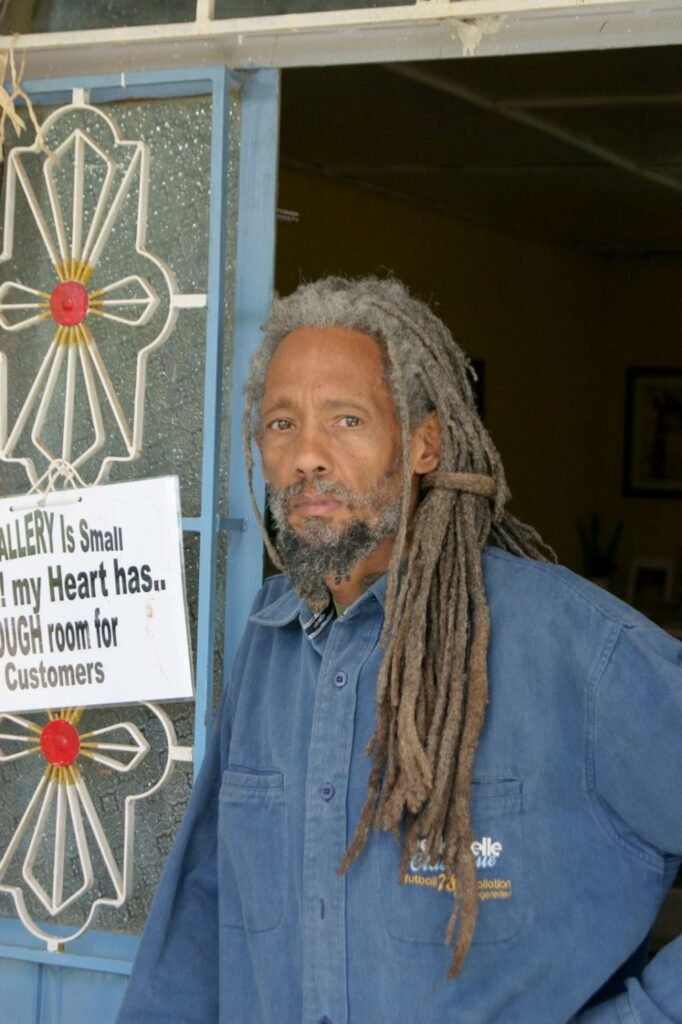 ALLERY Is Small
! my Heart has..
OUGH room for
Customers
elle
ue
futball 78 allation
gereries